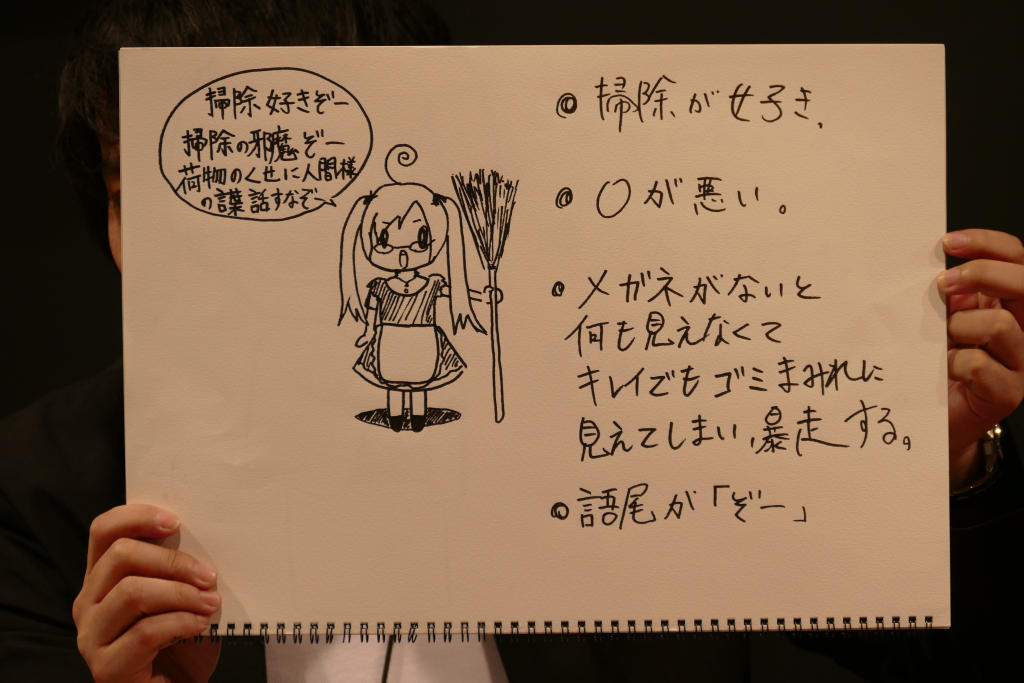 掃除好きぞー
掃除の邪魔ぞー
荷物のくせに人間様
の言葉話すなぞー
掃除が好き。
口が悪い。
メガネがないと
何も見えなくて
キレイでもゴミまみれに
見えてしまい、暴走する。
語尾が「ぞー」